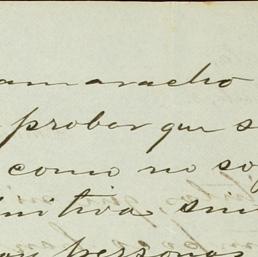 amaracho
probar que s
como no so
initiva sin
personas